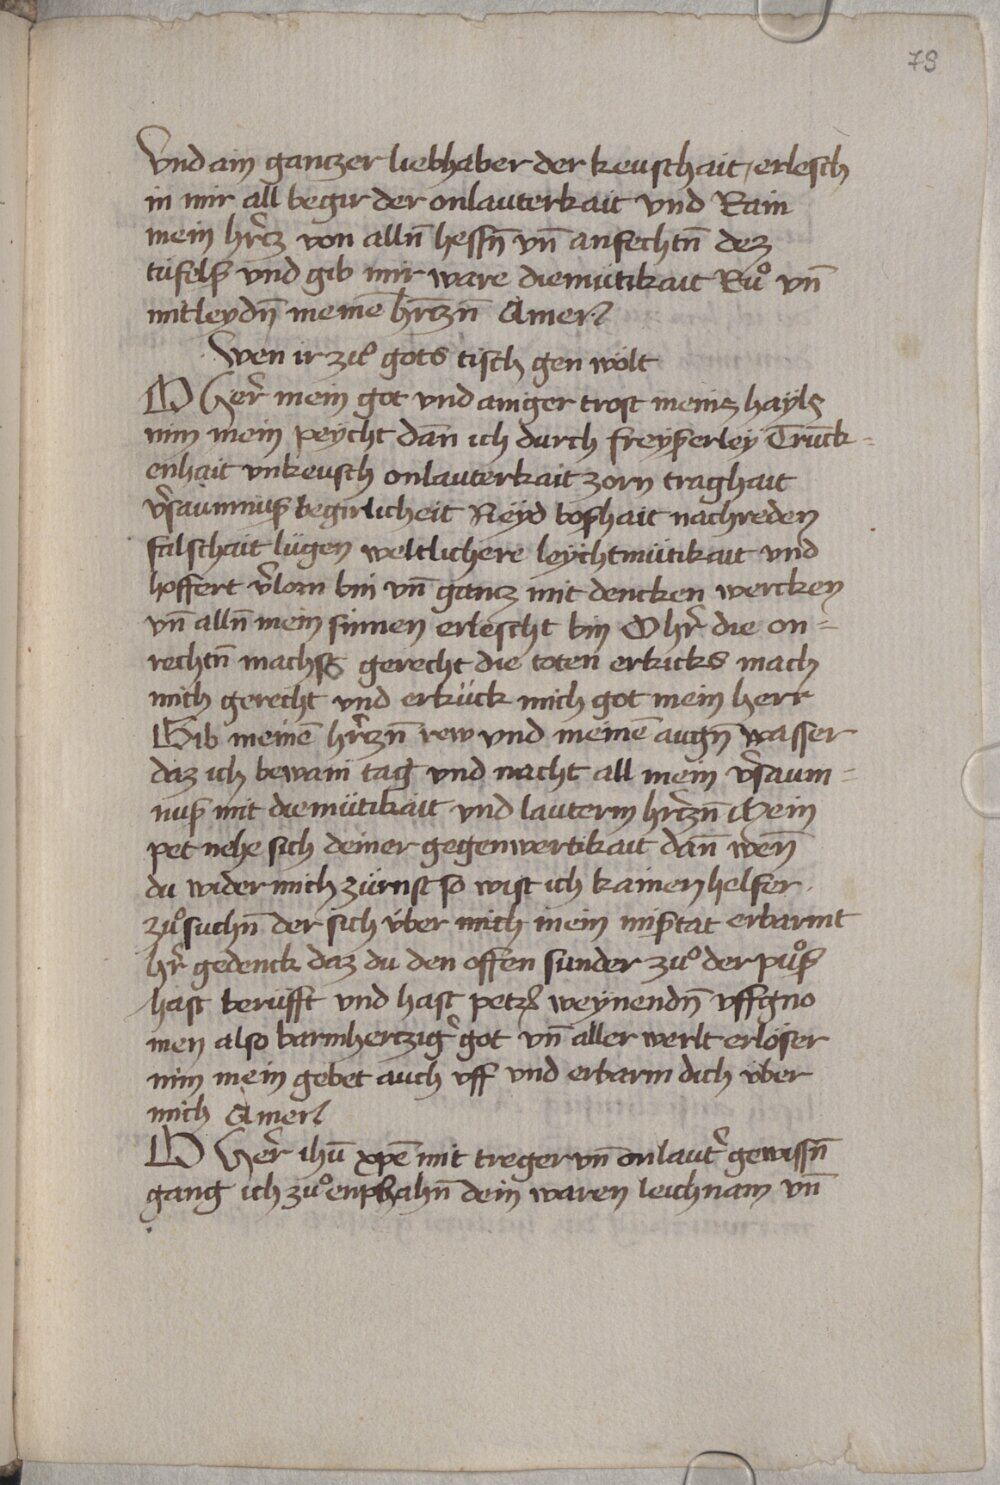 78
Vnd ain gantzer liebhaber der keuschait / erlesch
in mir all begir der onlauterkait vnd Rain
mein hr̃cz von alln̄ hessn̄ vn̄ anfechtn̄ dez
tüfelß vnd gib mir ware diemütikait Rů vn̄
mitleydn̄ meinē hr̄czn̄ Amen
Wen ir zů gots tisch gen wölt
O Her̃ mein got vnd ainger trost meins hayls
nim mein peycht dān ich durch freyßerley Trūck=
enhait vnkeusch onlauterkait zorn traghait
ṽsaumnuß begirlicheit Neyd boßhait nachreden
falschait lügen weltlichere leychtmütikait vnd
hoffert ṽlorn bin vn̄ gancz mit dencken wercken
vn̄ alln̄ mein sinnen erlescht bin O hr̃ die on=
rechtn̄ machst gerecht die toten erkicks mach
mich gerecht vnd erkück mich got mein herr
Gib meinē hr̃czn̄ rew vnd meinē augn̄ wasser
daz ich bewain tag vnd nacht all mein ṽsaum=
nuß mit diemütikait vnd lauterm hr̃czn̄ Mein
pet nehe sich deiner gegenwertikait dan̄ wen̄
du wider mich zürnst so wist ich kainen helfer
zů suchn̄ der sich über mich mein mißtat erbarmt
hr̃ gedenck daz du den offen sünder zů der půß
hast berüfft vnd hast petrꝰ weynendn̄ vffgno
men also barmhertzig̃ got vn̄ aller werlt erlöser
nim mein gebet auch vff vnd erbarm dich über
mich Amen
O Her̃ ihū xpē mit treger vn̄ onlaut̃ gewissn̄
gang ich zů enpfahn̄ dein waren leichnam vn̄